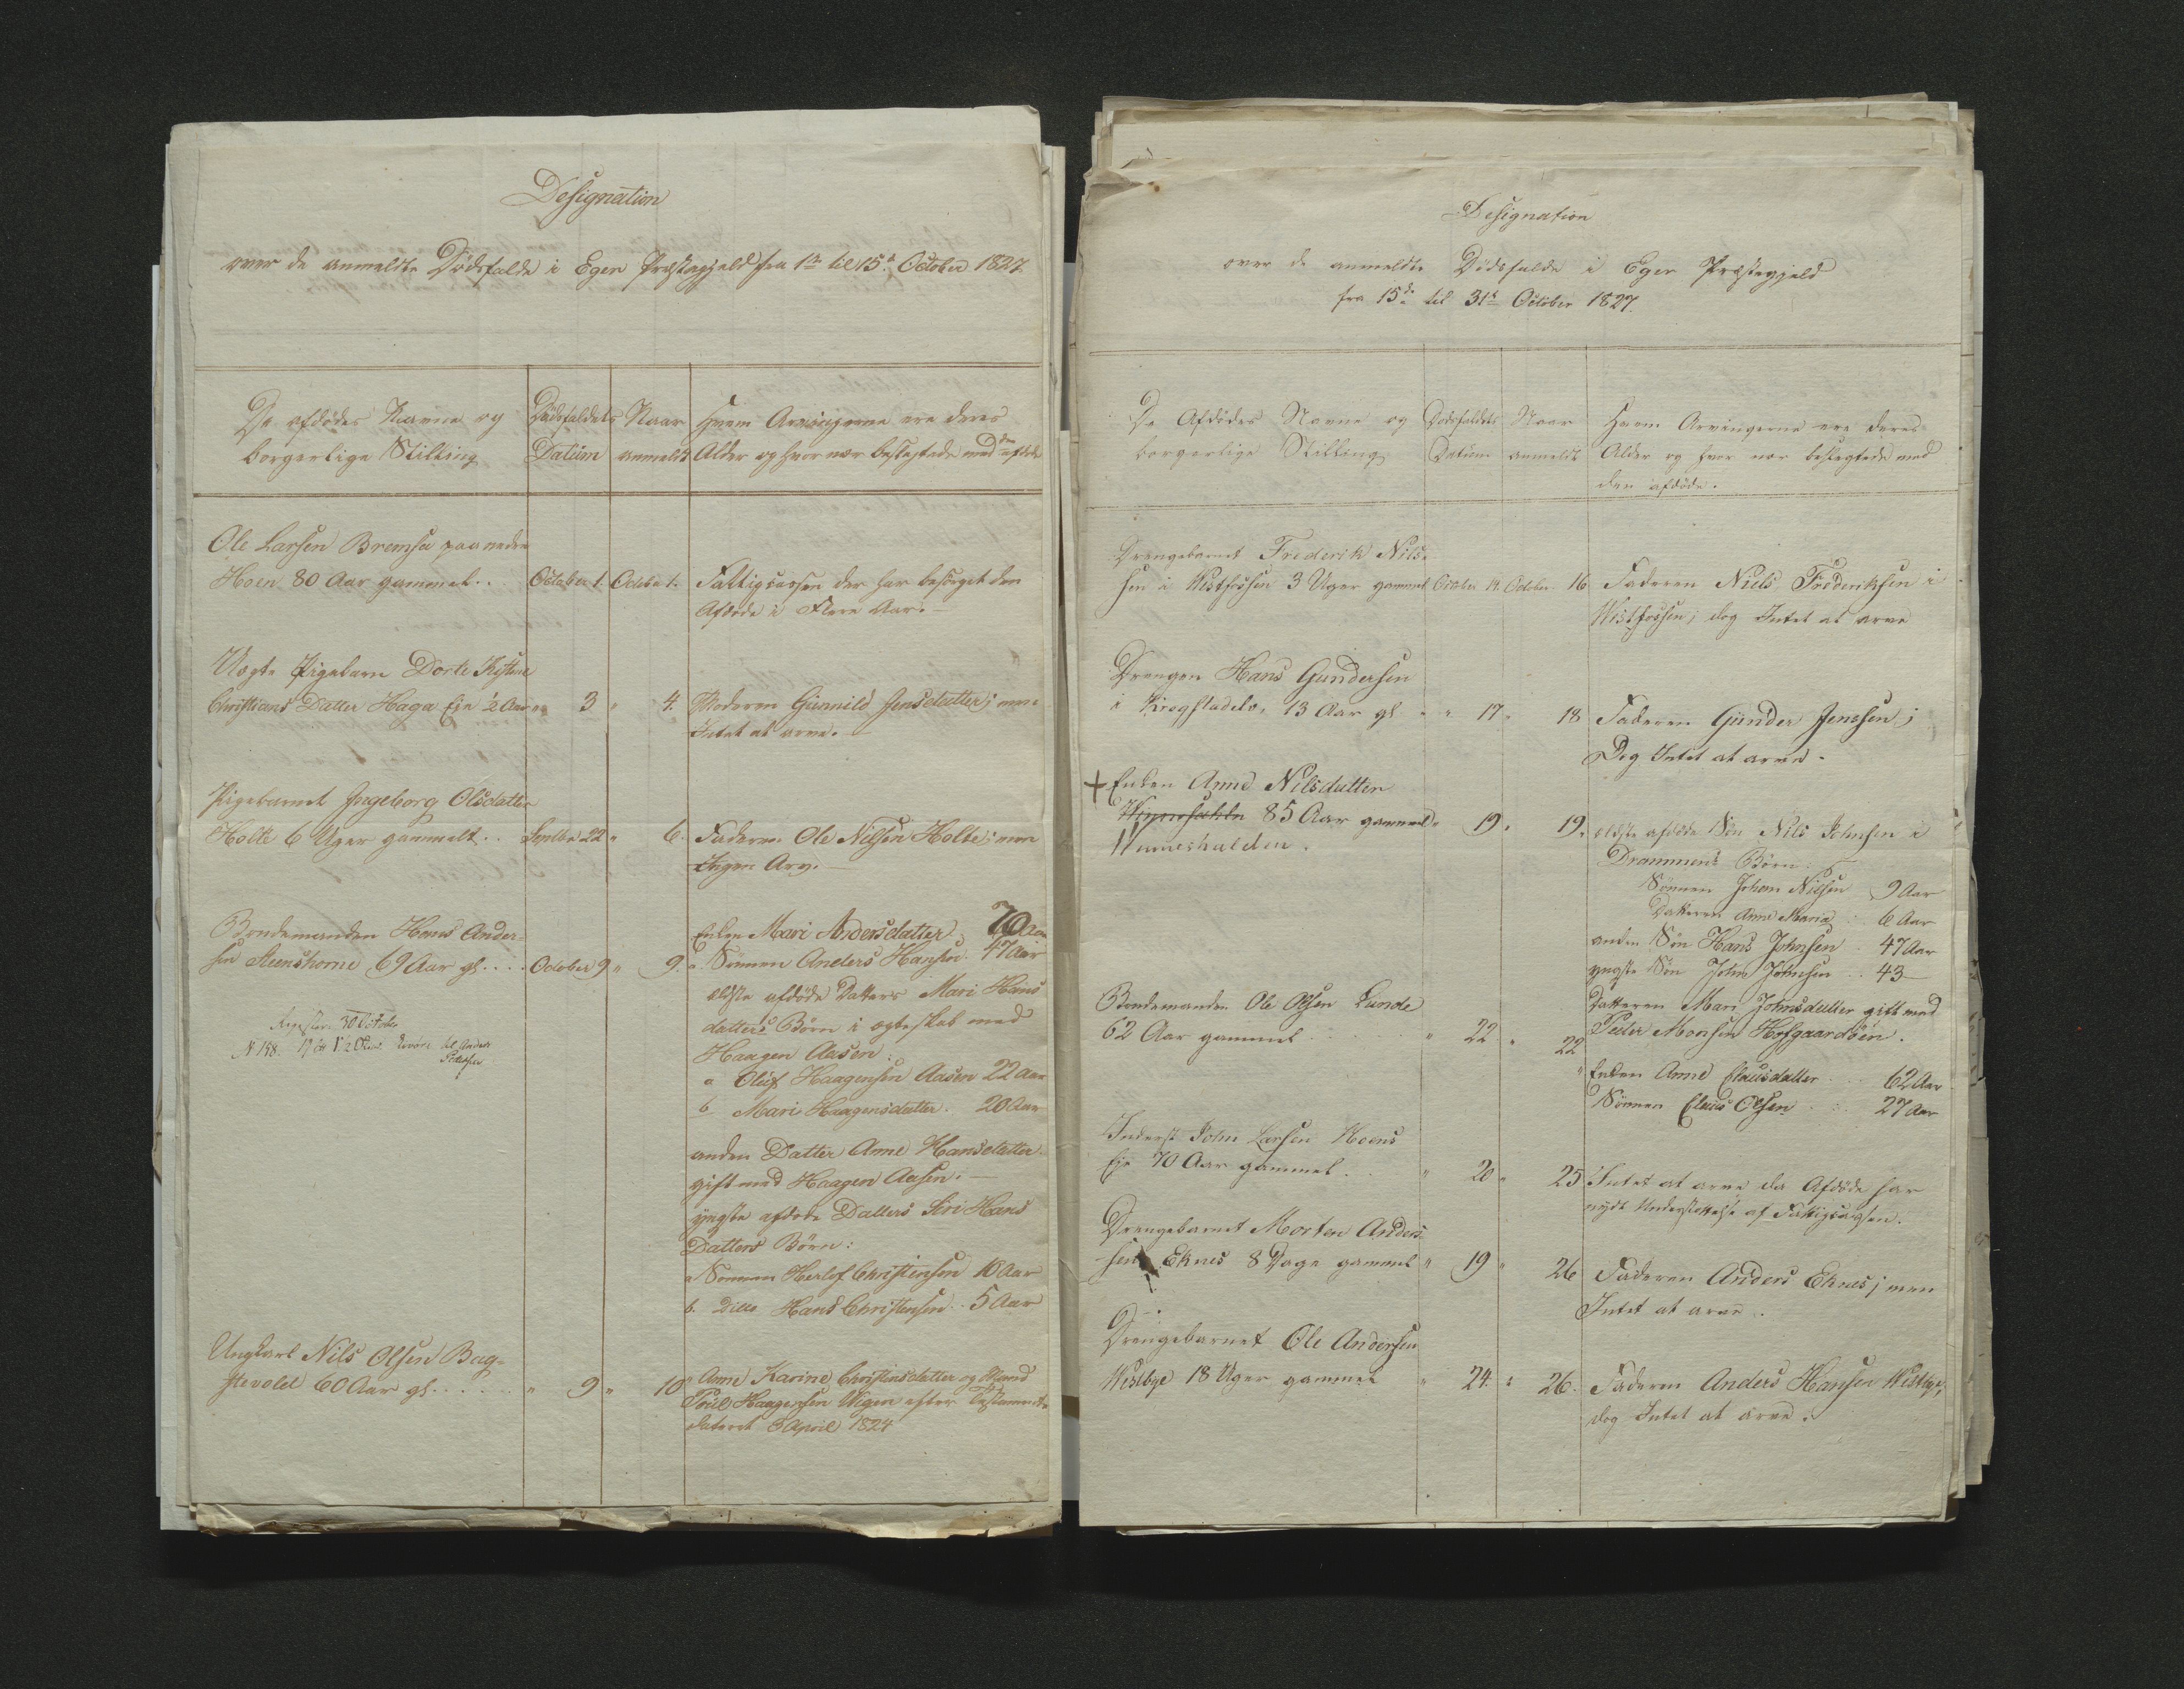 Designation
over de anmeldte Dödsfalde i Eger Præstegjeld fra 1te til 15de October 1827.
De afdödes Navne og
borgerlige Stilling
Dödsfaldets
Datum
Naar
anmeldt
Hvem Arvingerne ere deres
Alder og hvor nær beslegtede med den afdöde
Ole Larsen Bremsa paa nedre
Hoen 80 Aar gammel .. October 1. October 1. Fattigcassen der har besörget den
Afdöde i Flere Aar. —
Uægte Pigebarn Dorte Kistine
Christians Datter Haga Eie ½ Aar " 3 " 4. Moderen Gunnild Jensdatter; men
Intet at arve. —
Pigebarnet Ingeborg Olsdatter
Holte 6 Uger gammelt .. Septbr 22 " 6. Faderen Ole Nilsen Holte; men
Ingen Arv. —
Bondemanden Hans Ander-
sen Steenshorne 69 Aar gl .... October 9 " 9.
Enken Mari Andersdatter 70 Aar
Sönnen Anders Hansen. 47 Aar
ældste afdöde Datters Mari Hans
datters Börn i ægteskab med
Haagen Aasen:
a Oluf Haagensen Aasen 22 Aar
b Mari Haagensdatter. 20 Aar
anden Datter Anne Hansdatter
gift med Haagen Aasen: —
yngste afdöde Datters Siri Hans
Datters Börn:
a Sönnen Herlof Christensen 10 Aar
b. Ditto Hans Christensen .. 5 Aar
30 October
N. 198.
Ungkarl Nils Olsen Bag-
stevolel 60 Aar gl ...... " 9 " 10
" Anne Karine Christensdatter og Mand
Poul Haagensen Wigen efter Testamente
dateret 3 April 1824
Designation
over de anmeldte Dödsfalde i Eger Præstegjeld
fra 15de til 31te October 1827.
De Afdödes Navne og
borgerlige Stilling
Dödsfaldets
Datum
Naar
anmeldt
Hvem Arvingerne ere deres
Alder og hvor nær beslegtede med
den afdöde.
Drengebarnet Frederik Nils-
sen i Westfossen 3 Uger gammel October 14. October 16 Faderen Niels Frederiksen i
Westfossen; dog Intet at arve
Drengen Hans Gundersen
i Krogstadelv. 13 Aar gl. " 17 " 18 Faderen Gunder Jensen;
Dog Intet at arve.
+ Enken Anne Nilsdatter
85 Aar gammel " 19. 19.
Wurneshalden.
ældste afdöde Sön Nils Johnsen i
Drammens Börn:
Sönnen Johan Nilsen 9 Aar
Datteren Anne Maria .. 6 Aar
anden Sön Hans Johnsen . 47 Aar
yngste Sön John Johnsen .. 43 —
Datteren Mari Johnsdatter gift med
Peder Monsen Hofgaardöen.
Bondemanden Ole Olsen Lunde
62 Aar gammel ..... " 22 " 22
" Enken Anne Clausdatter ... 62 Aar
Sönnen Claus Olsen ... 27 Aar
Inderst John Larsen Hoens
Eje 70 Aar gammel .. " 20 " 25 Intet at arve da Afdöde har
nydt Understöttelse af Fattigcassen.
Drengebarnet Morten Anders-
sen Eknes 8 Dage gammel " 19 " 26 Faderen Anders Eknes; men
Intet at arve.
Drengebarnet Ole Andersen
Westbye 18 Uger gammel " 24. " 26. Faderen Anders Hansen Westbye,
dog Intet at arve.